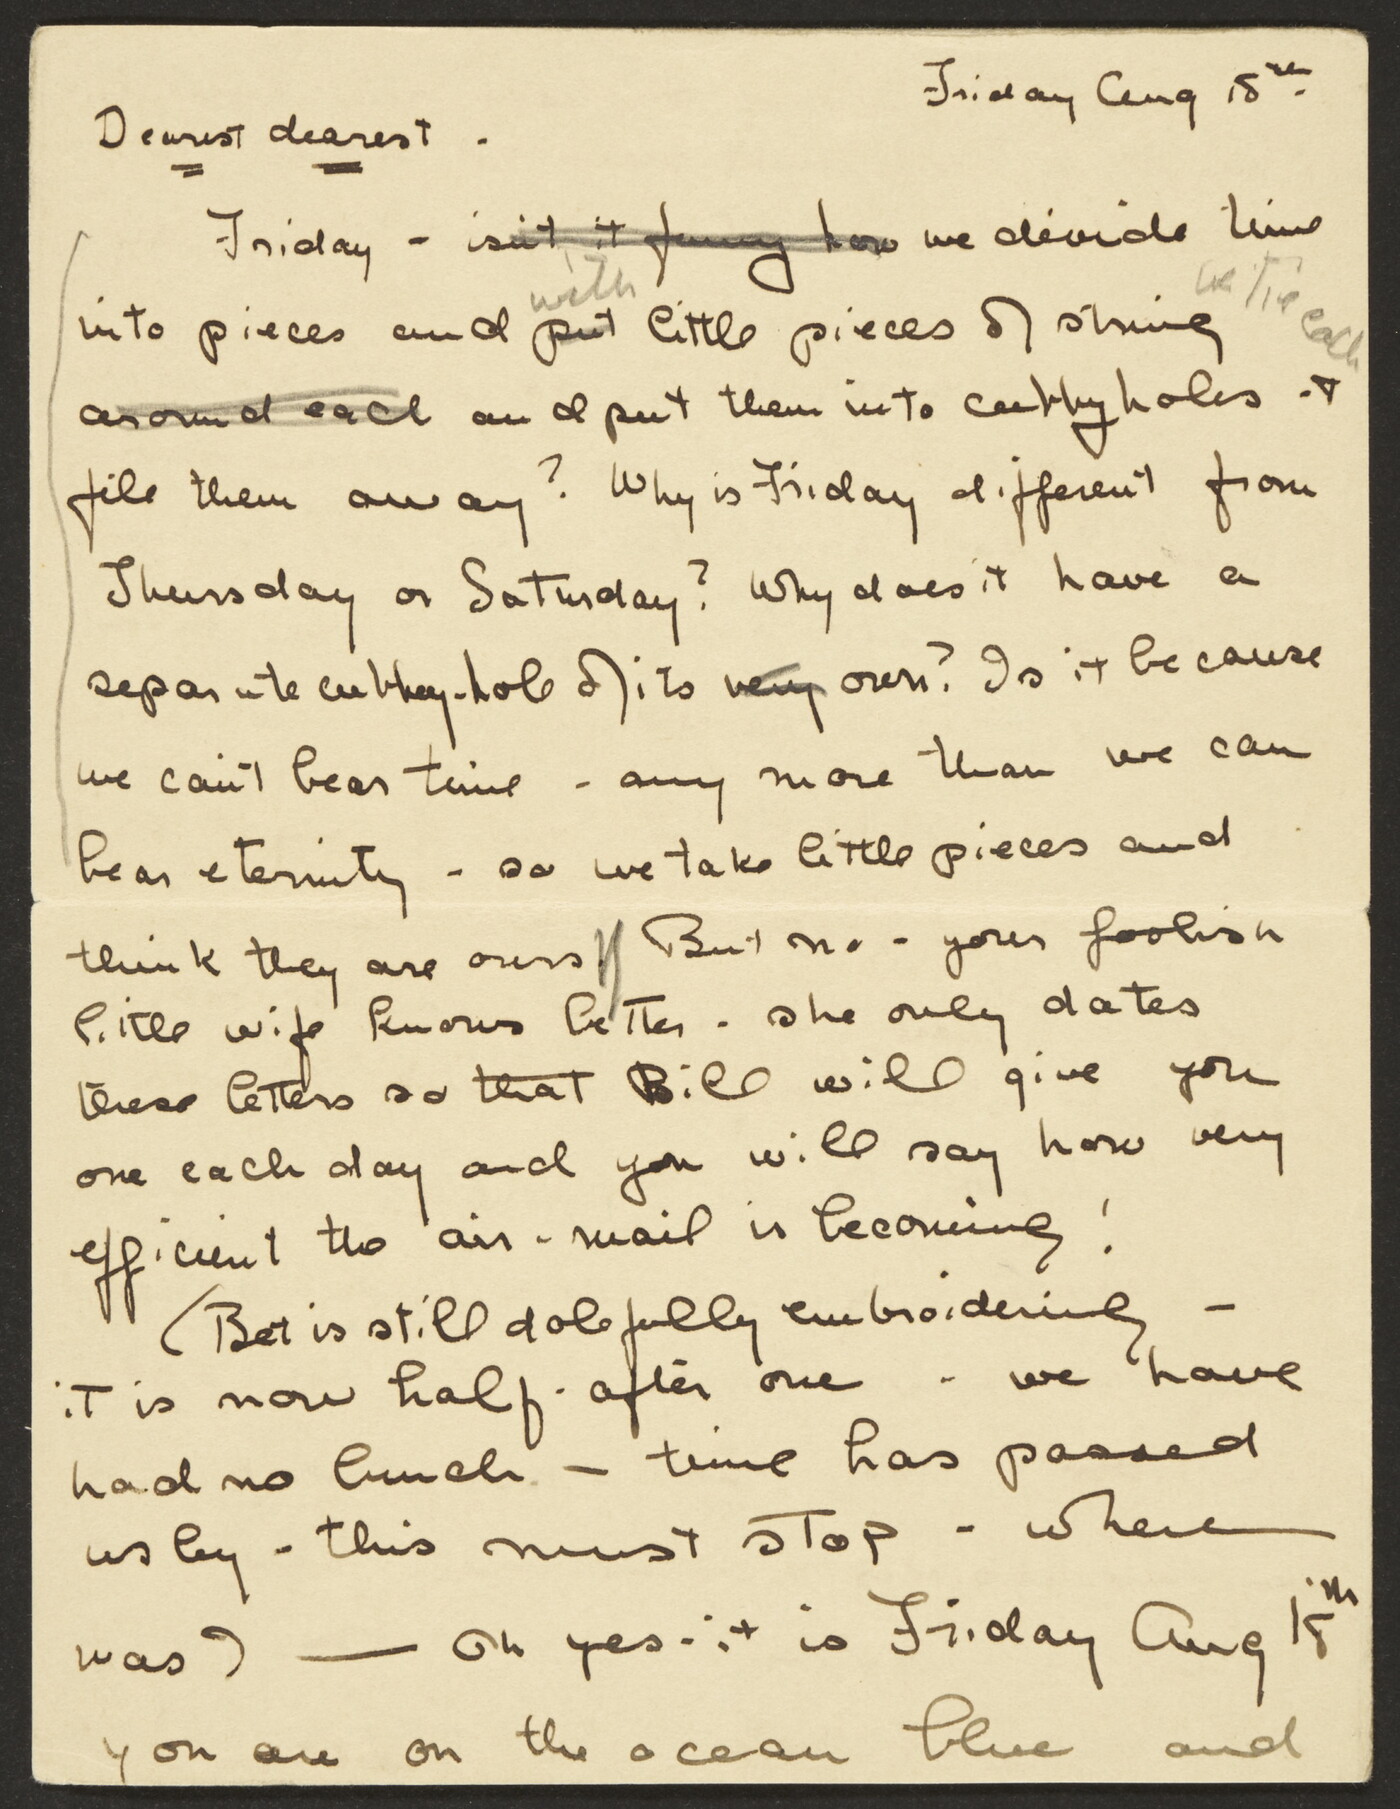 Friday Aug 18th.
Dearest dearest.
Friday - isn't it funny how we divide time
with
we tie each
into pieces and put little pieces of string
around each and put them into cubbyholes +
file them away? Why is Friday different from
Thursday or Saturday? Why does it have a
separate cubbey-hole of its very own? Is it because
we can't bear time - any more than we can
bear eternity - so we take little pieces and
think they are ours. But no - your foolish
little wife knows better - she only dates
these letters so that Bill will give you
one each day and you will say how very
efficient the air-mail is becoming!
(Bet is still dolefully embroidering -
it is now half-after one - we have
had no lunch - time has passed
us by - this must stop - where
was) — Oh yes - it is Friday Aug 18th
you are on the ocean blue and